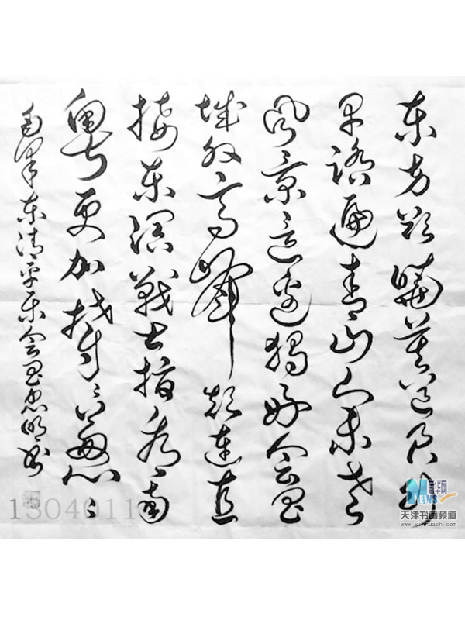 东方欲晓莫道君行
早踏遍青山人未老
风景这边独好会昌
城外高峰颠连直
接东溟战士指看南
粤更加郁々葱々
毛泽东清平乐会昌
天津书画频道